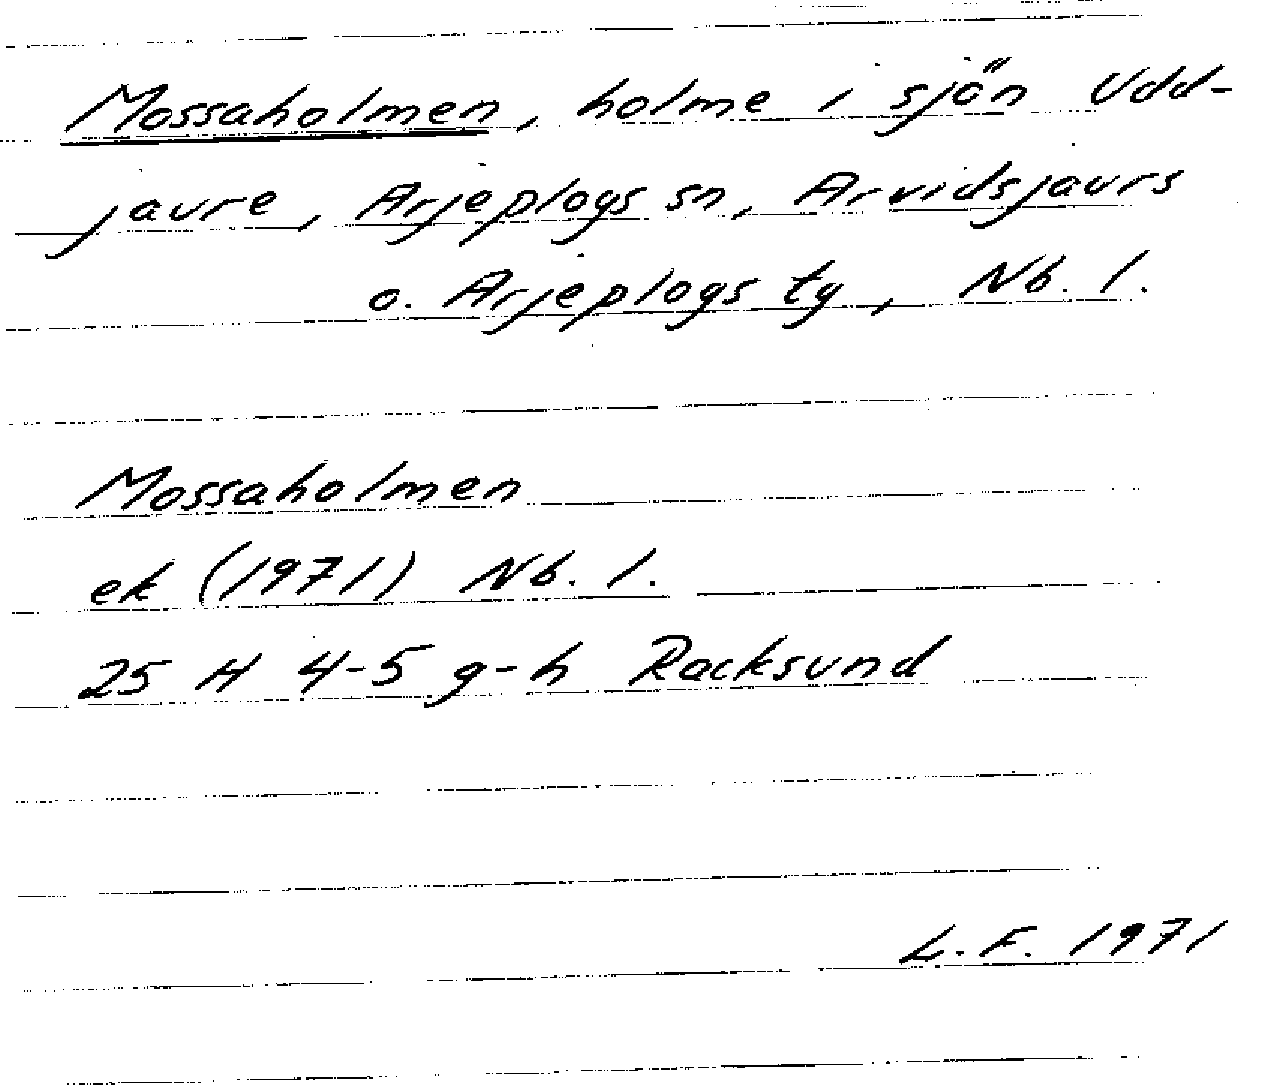 Mossaholmen, holme i sjön Udd-
jaure, Arjeplogs sn, Arvidsjaurs
o. Arjeplogs tg, Nb. l.
Mossaholmen
ek (1971) Nb. l.
25 H 4-5 g-h Racksund
L.F. 1971